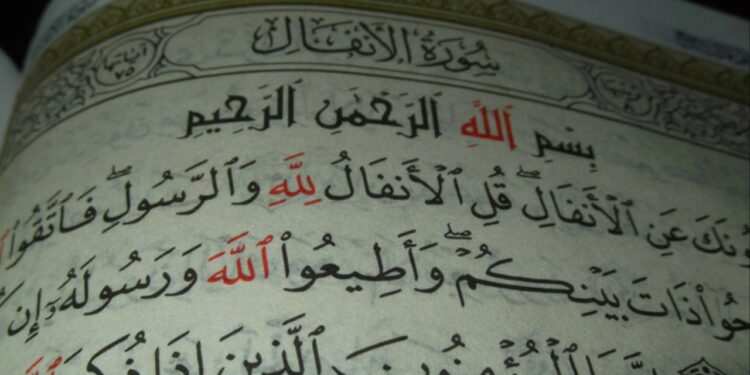 سُورَةُ الأَنفَالِ
آيَاتُهَا ٧٥
بِسْمِ ٱللَّهِ ٱلرَّحْمَٰنِ ٱلرَّحِيمِ
عَنِ ٱلْأَنفَالِۖ قُلِ ٱلْأَنفَالُ لِلَّهِ وَٱلرَّسُولِۖ فَٱتَّقُوا۟
ذَاتَ بَيْنِكُمْۖ وَأَطِيعُوا۟ ٱللَّهَ وَرَسُولَهُۥٓ إِن
ٱلَّذِينَ إِذَا